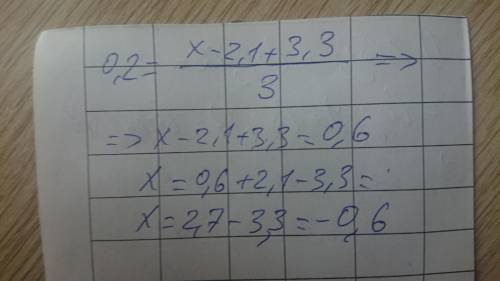 0,2 = (x - 2,1 + 3,3) / 3 =>
=> x - 2,1 + 3,3 = 0,6
x = 0,6 + 2,1 - 3,3 =
x = 2,7 - 3,3 = -0,6